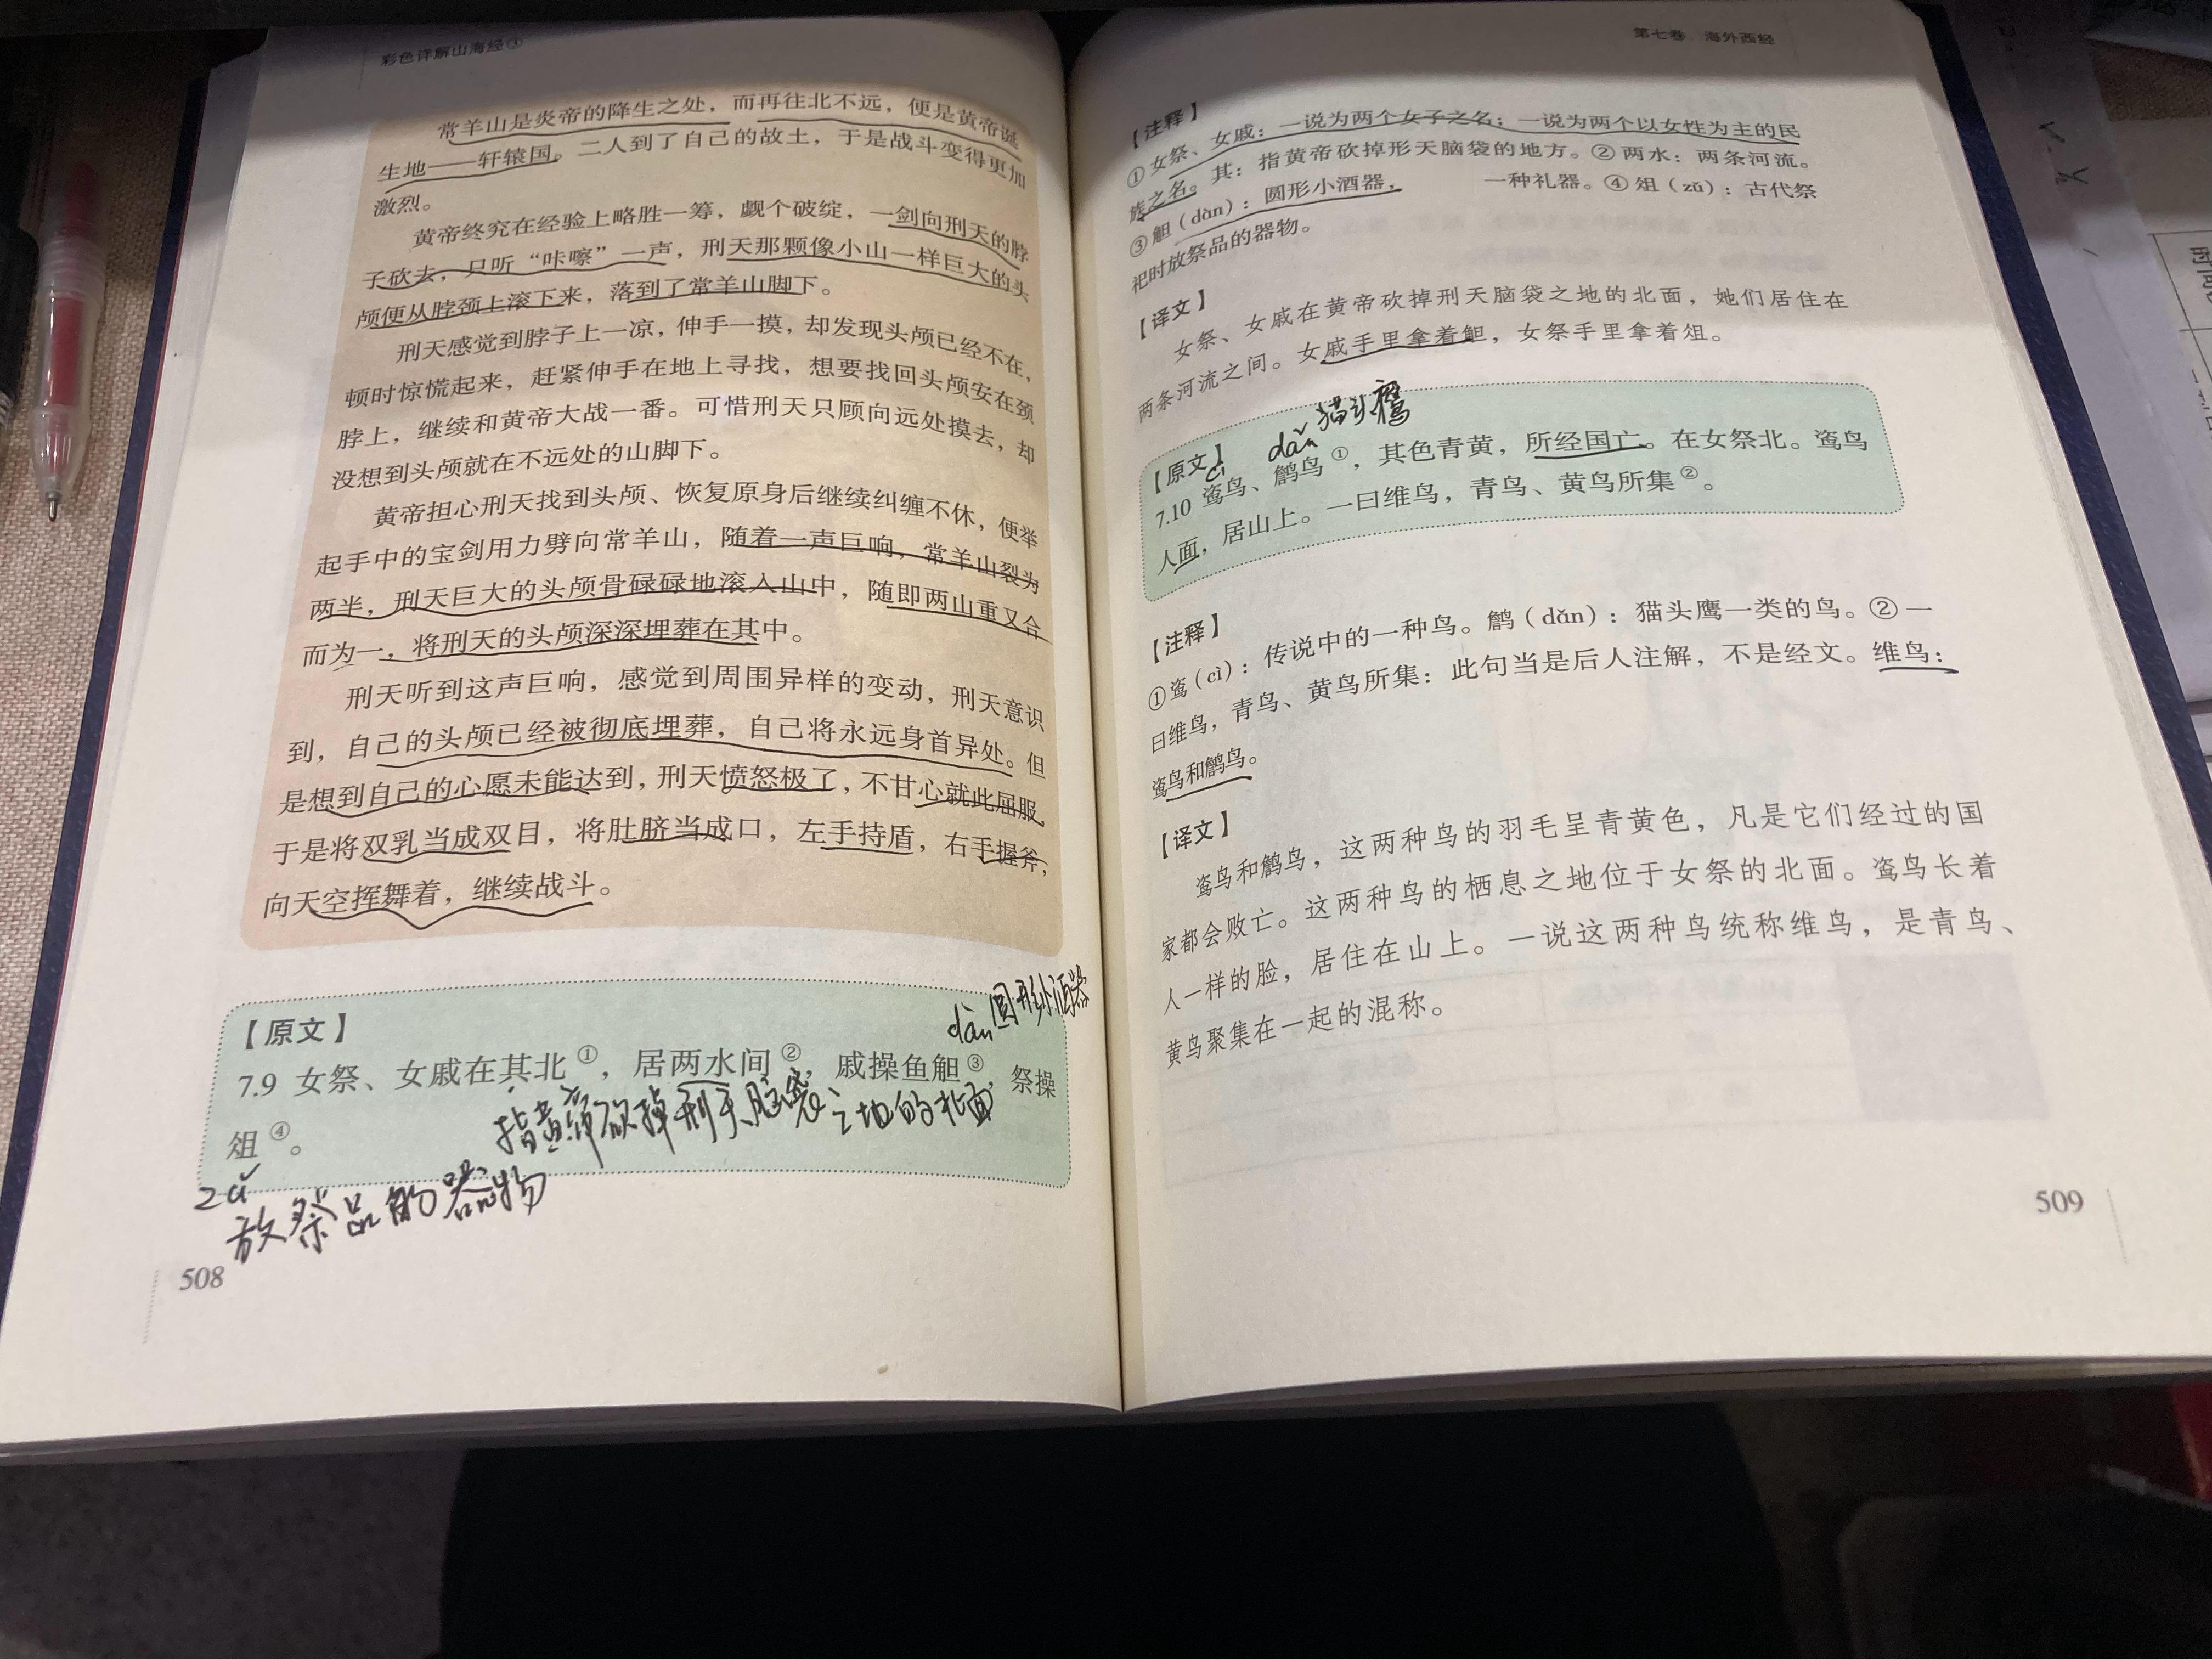 彩色详解山海经③
常羊山是炎帝的降生之处，而再往北不远，便是黄帝诞
生地——轩辕国。二人到了自己的故土，于是战斗变得更加
激烈。
黄帝终究在经验上略胜一筹，觑个破绽，一剑向刑天的脖
子砍去，只听“咔嚓”一声，刑天那颗像小山一样巨大的头
颅便从脖颈上滚下来，落到了常羊山脚下。
刑天感觉到脖子上一凉，伸手一摸，却发现头颅已经不在，
顿时惊慌起来，赶紧伸手在地上寻找，想要找回头颅安在颈
脖上，继续和黄帝大战一番。可惜刑天只顾向远处摸去，却
没想到头颅就在不远处的山脚下。
黄帝担心刑天找到头颅、恢复原身后继续纠缠不休，便举
起手中的宝剑用力劈向常羊山，随着一声巨响，常羊山裂为
两半，刑天巨大的头颅骨碌碌地滚入山中，随即两山重又合
而为一，将刑天的头颅深深埋葬在其中。
刑天听到这声巨响，感觉到周围异样的变动，刑天意识
到，自己的头颅已经被彻底埋葬，自己将永远身首异处。但
是想到自己的心愿未能达到，刑天愤怒极了，不甘心就此屈服，
于是将双乳当成双目，将肚脐当成口，左手持盾，右手握斧，
向天空挥舞着，继续战斗。
【原文】
dàn圆形小酒器
7.9 女祭、女戚在其北①，居两水间②，戚操鱼觛③，祭操
指黄帝砍掉刑天脑袋之地的北面
俎④。
zǔ
放祭品的器物
508
第七卷 海外西经
【注释】
①女祭、女戚：一说为两个女子之名；一说为两个以女性为主的民
族之名。其：指黄帝砍掉形天脑袋的地方。②两水：两条河流。
③觛（dàn）：圆形小酒器， 一种礼器。④俎（zǔ）：古代祭
祀时放祭品的器物。
【译文】
女祭、女戚在黄帝砍掉刑天脑袋之地的北面，她们居住在
两条河流之间。女戚手里拿着觛，女祭手里拿着俎。
dǎn 猫头鹰
【原文】
cì
7.10 鴍鸟、鶬鸟①，其色青黄，所经国亡。在女祭北。鴍鸟
人面，居山上。一曰维鸟，青鸟、黄鸟所集②。
【注释】
①鴍（cì）：传说中的一种鸟。鶬（dǎn）：猫头鹰一类的鸟。②一
曰维鸟，青鸟、黄鸟所集：此句当是后人注解，不是经文。维鸟：
鴍鸟和鶬鸟。
【译文】
鴍鸟和鶬鸟，这两种鸟的羽毛呈青黄色，凡是它们经过的国
家都会败亡。这两种鸟的栖息之地位于女祭的北面。鴍鸟长着
人一样的脸，居住在山上。一说这两种鸟统称维鸟，是青鸟、
黄鸟聚集在一起的混称。
509